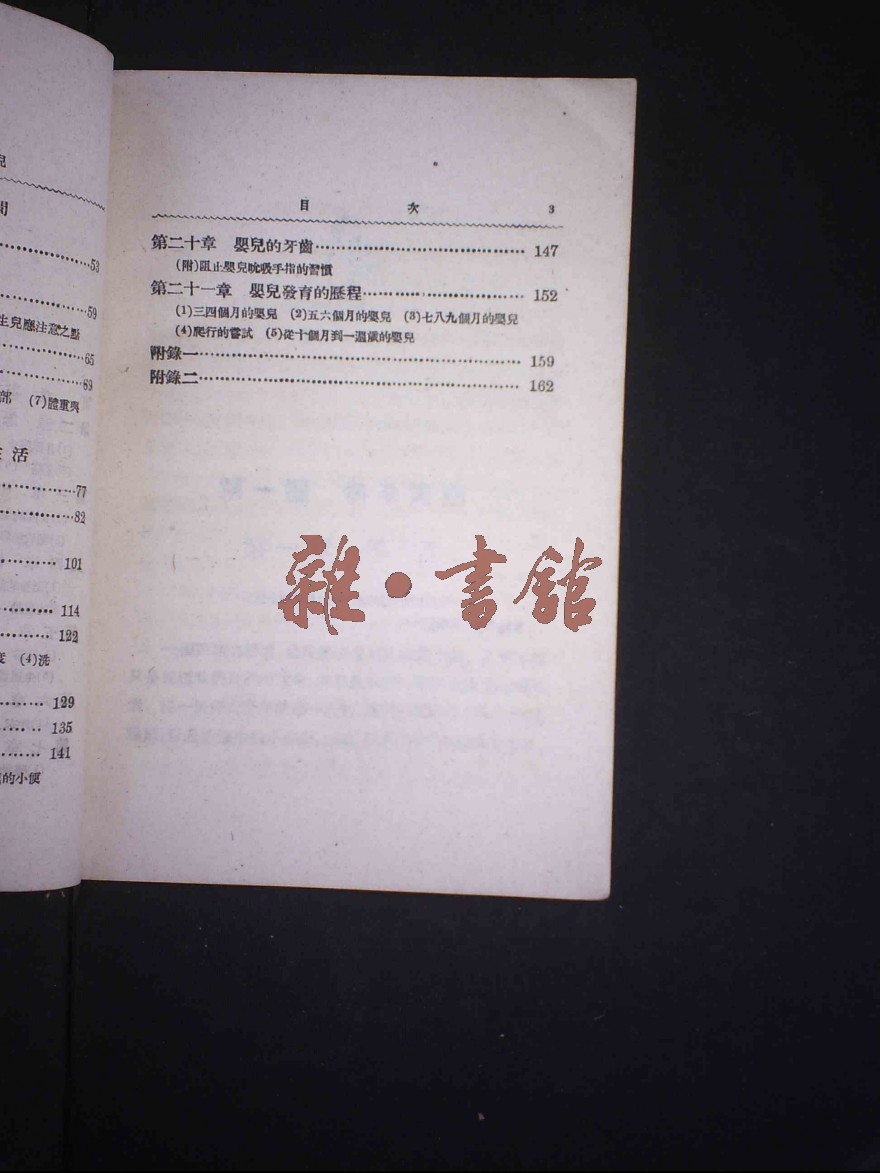 兒
間
53
59
生兒應注意之點
65
69
部 (7)體重與
生活
77
82
101
114
122
度 (4)洗
129
135
141
的小便
目 次 3
第二十章 嬰兒的牙齒 147
(附)阻止嬰兒吮吸手指的習慣
第二十一章 嬰兒發育的歷程 152
(1)三四個月的嬰兒 (2)五六個月的嬰兒 (3)七八九個月的嬰兒
(4)爬行的嘗試 (5)從十個月到一週歲的嬰兒
附錄一 159
附錄二 162
雜·書館